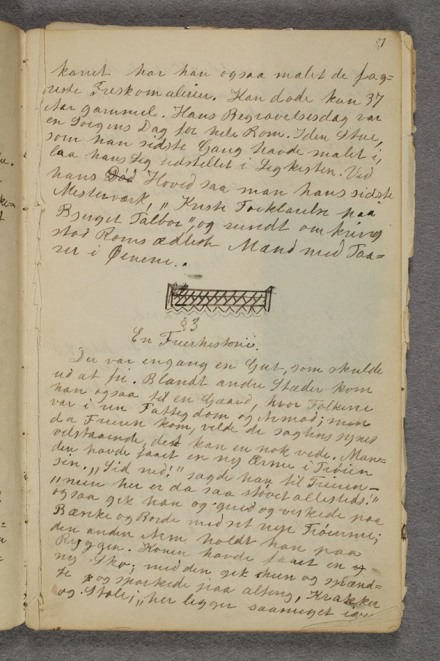 81
kanet har han ogsaa malet de fag-
reste Freskomalerier. Han døde kun 37
Aar gammel. Hans Begravelsesdag var
en Sorgens Dag for hele Rom. I den Stue,
som han sidste Gang havde malet i,
laa hans Lig udstillet i Ligkisten. Ved
hans Hoved saa man hans sidste
Mesterværk, "Kristi Forklarelse paa
Bjerget Tabor", og rundt omkring
stod Roms ædleste Mænd med Taa-
rer i Øinene.
§3
En Frierhistorie.
Der var engang en Gut, som skulde
ud at fri. Blandt andre Stæder kom
han ogsaa til en Gaard, hvor Folkene
var i en Fattigdom og Armod; men
da Frieren kom, vilde de sagtens synes
velstaaende, det kan en nok vide. Man-
den havde faaet en ny Ærme i Trøien
sin. "Sid ned," sagde han til Frieren—
"men her er da saa støvet allesteds."
ogsaa gik han og gned og viskede paa
Bænke og Borde med sit nye Trøierme;
den anden Arm holdt han paa
Ryggen. Konen havde faaet en
ny Sko; med den gik hun og spænd-
te og sparkede paa alting, Krakker
og Stole; "her ligger saameget